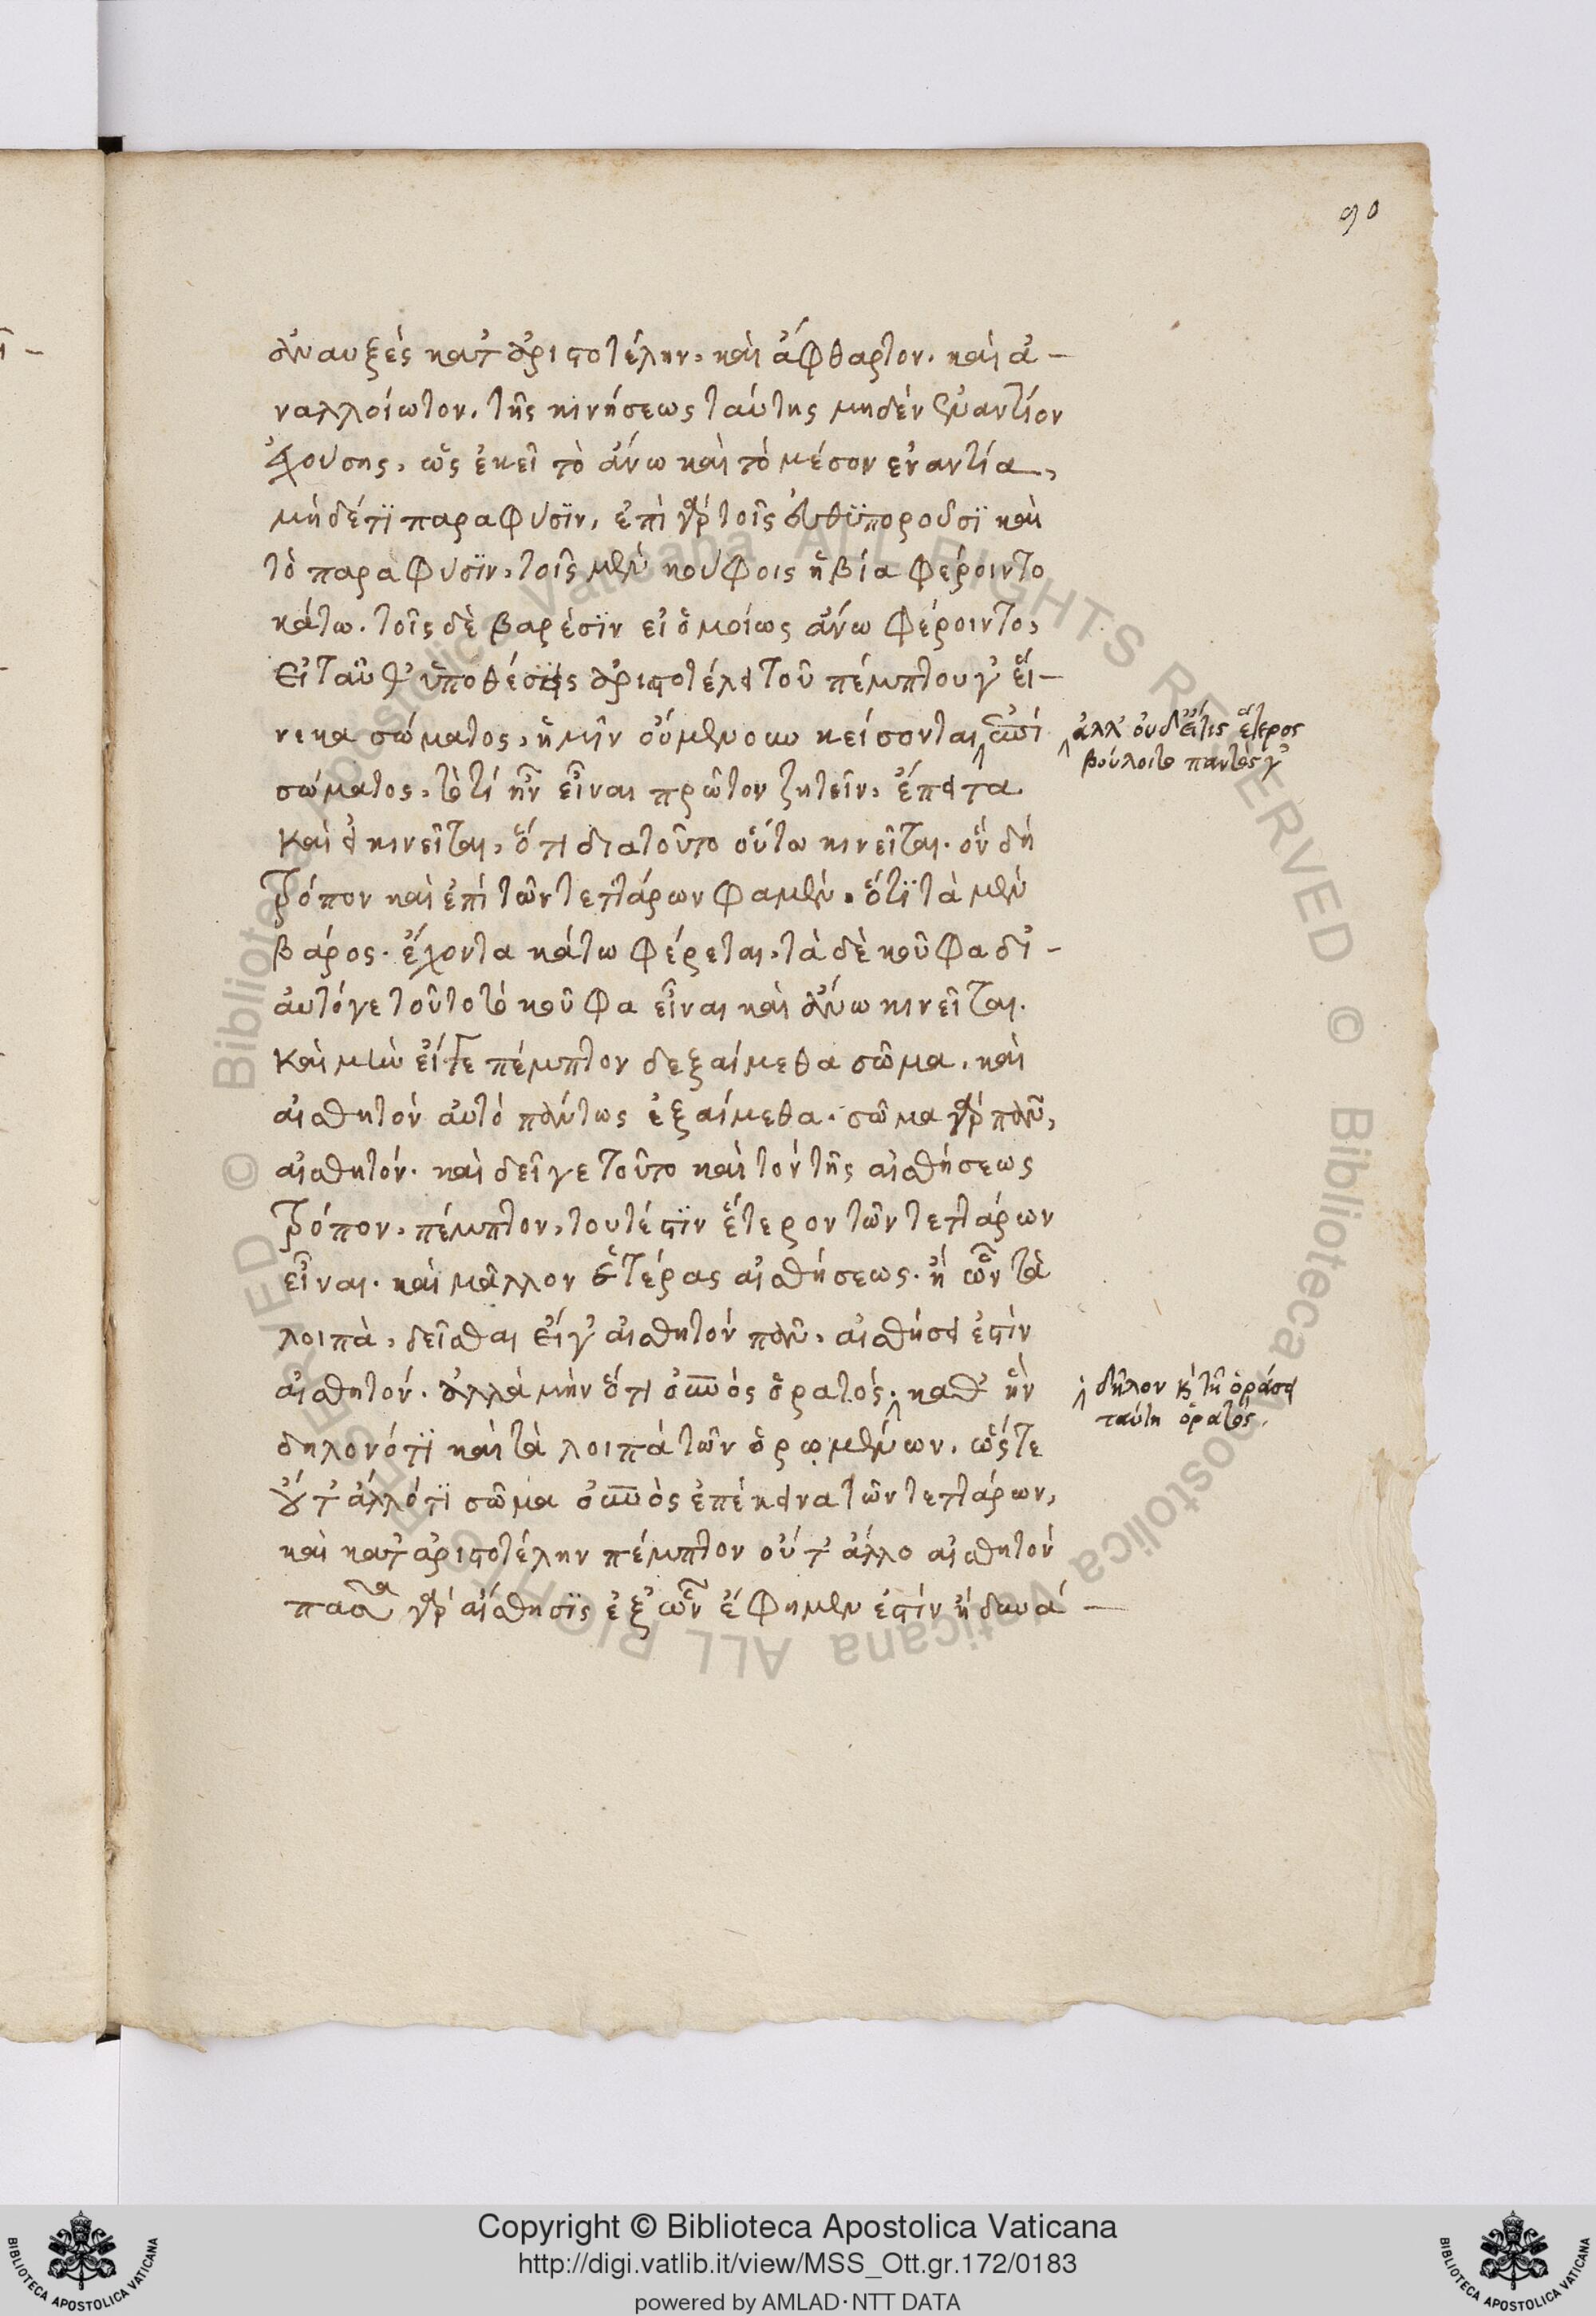 90
ἀναυξὲς κατ' ἀριστοτέλην, καὶ ἄφθαρτον. καὶ ἀ-
ναλλοίωτον. τῆς κινήσεως ταύτης μηδὲν ἐναντίον
ἐχούσης, ὡς ἐκεῖ τὸ ἄνω καὶ τὸ μέσον εναντία,
μηδέτϊ παραφύσϊν, ἐπὶ γὰρ τοῖς εὐθϋποροῦσϊ καὶ
τὸ παρα φύσϊν, τοῖς μὲν κούφοις ἢ βία φέροιντο
κάτω. τοῖς δὲ βαρέσϊν εἰ ὁμοίως ἄνω φέροιντο,
εἰ ταῦθ' ὑποθέσεις ἀριστοτέλει τοῦ πέμπτου γ' εἵ-
νεκα σώματος, ἡμῖν οὐμενοῦν κείσονται ἐπὶ
ἀλλ' οὐδ' εἴ τις ἕτερος
βούλοιτο παντός γ'
σώματος, τὸ τί ἦν εἶναι πρῶτον ζητεῖν, ἔπειτα
καὶ εἰ κινεῖται, ὅτι διατοῦτο οὕτω κινεῖται. ὃν δὴ
τρόπον καὶ ἐπὶ τῶν τεττάρων φαμὲν. ὅτϊ τὰ μὲν
βάρος. ἔχοντα κάτω φέρεται, τὰ δὲ κοῦφα δι'-
αυτόγε τοῦτο τὸ κοῦφα εἶναι καὶ ἄνω κινεῖται.
καὶ μὴν εἴτε πέμπτον δεξαίμεθα σῶμα, καὶ
αἰσθητὸν αὐτὸ πάντως ἐξαίμεθα. σῶμα γὰρ πᾶν,
αἰσθητόν. καὶ δεῖ γε τοῦτο καὶ τὸν τῆς αἰσθήσεως
τρόπον, πέμπτον, τουτέστϊν ἕτερον τῶν τεττάρων
εἶναι. καὶ μᾶλλον ἑτέρας αἰσθήσεως. ἢ ὧν τὰ
λοιπὰ, δεῖσθαι εἴγ' αἰσθητὸν πᾶν, αἰσθήσει ἐστὶν
αἰσθητόν. ἀλλὰ μὴν ὅτι οὐρανὸς ὁρατός, καθ' ἣν
δῆλον κ τῆ ὁράσει
ταύτη ὁρατὸς.
δηλονότϊ καὶ τὰ λοιπὰ τῶν ὁρωμένων. ὥστε
οὔτ' ἄλλότϊ σῶμα οὐρανὸς ἐπέκεινα τῶν τεττάρων,
καὶ κατ' ἀριστοτέλην πέμπτον οὔτ' ἄλλο αἰσθητὸν
πᾶσα γὰρ αἴσθησϊς ἐξ ὧν ἔφημεν ἐστὶν ἡ δυνά-
Copyright © Biblioteca Apostolica Vaticana
http://digi.vatlib.it/view/MSS_Ott.gr.172/0183
powered by AMLAD·NTT DATA